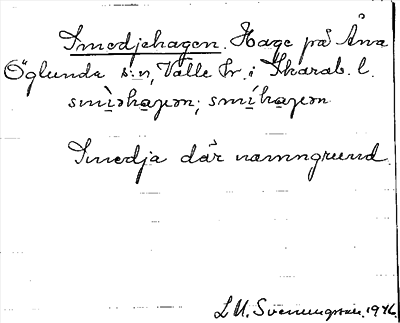 Smedjehagen. Hage på Åna
Öglunda s:n, Valle hr. i Skarab. l.
smìəhaɡən; smíhaɡən
Smedja där namngrund.
L M. Svenungsson. 1946.